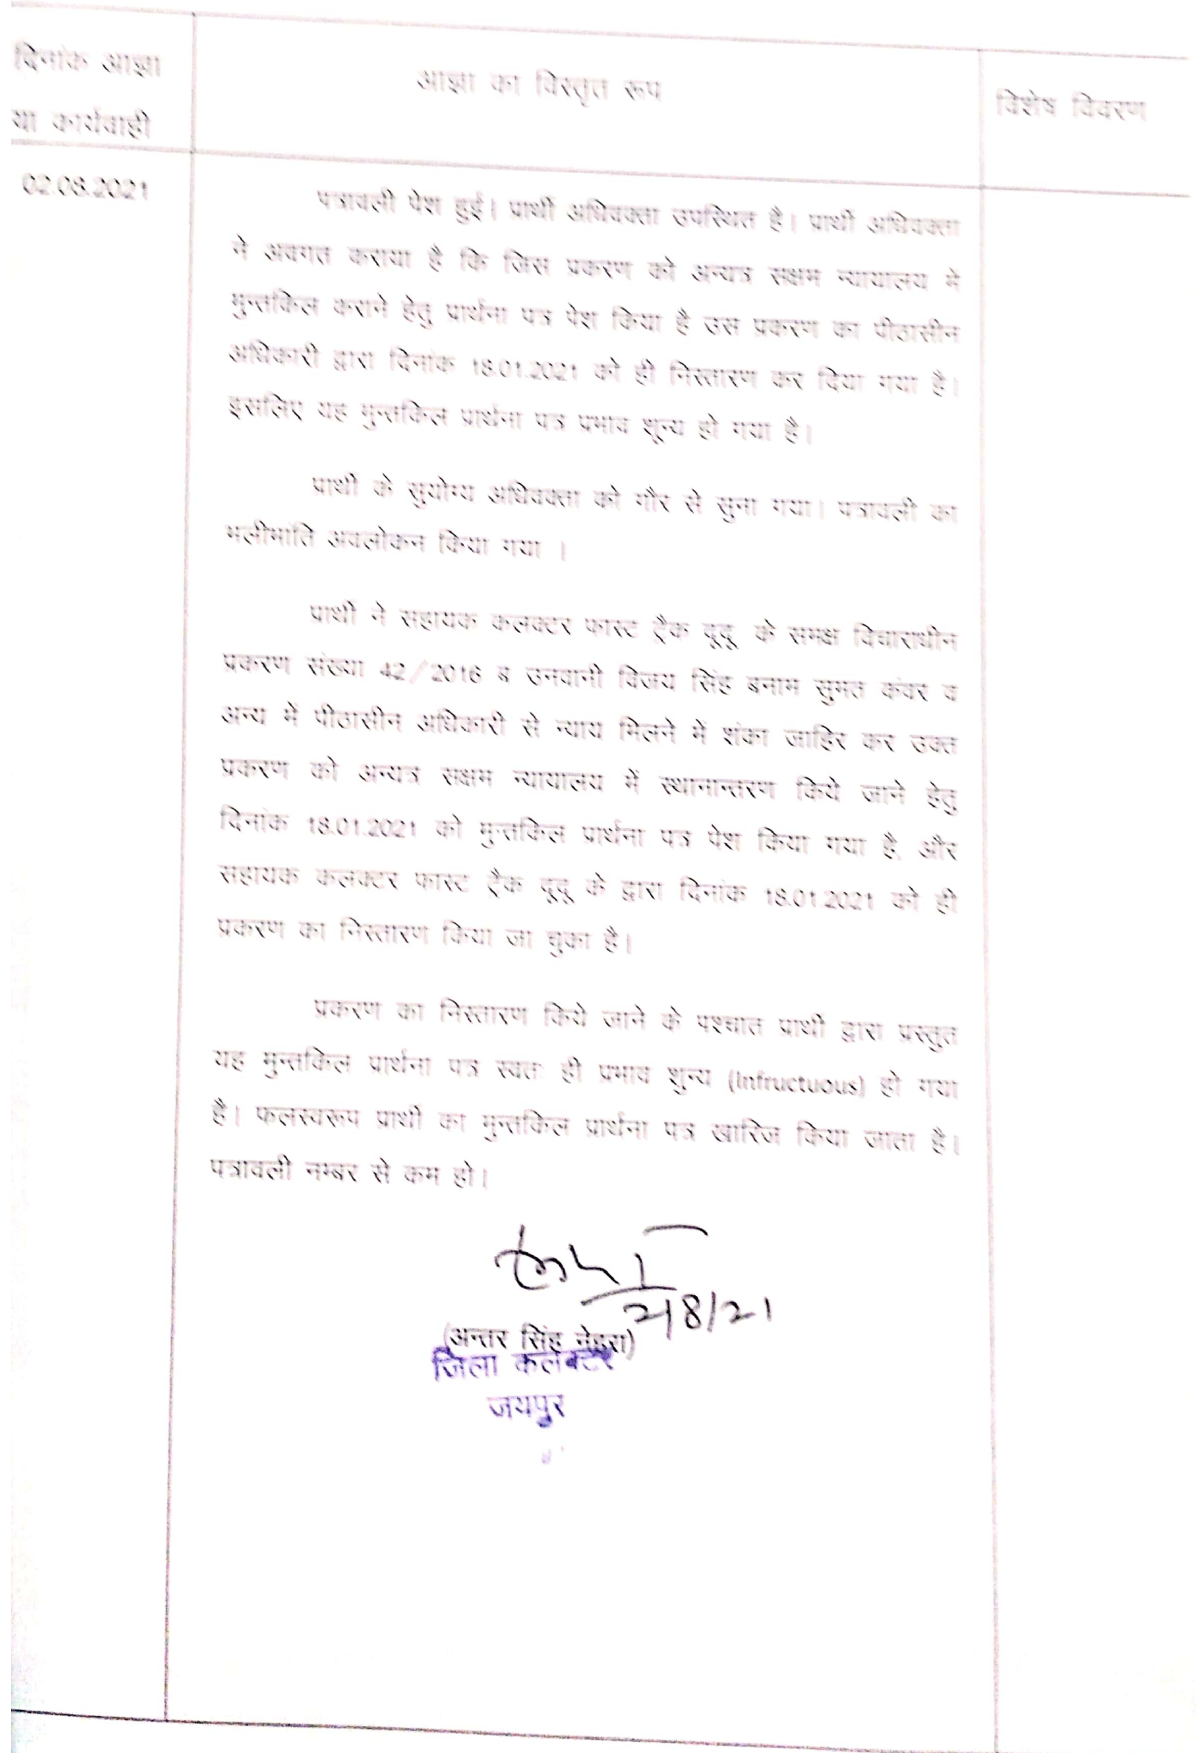 दिनांक आज्ञा
या कार्यवाही
आज्ञा का विस्तृत रूप
विशेष विवरण
02.08.2021
पत्रावली पेश हुई। प्रार्थी अधिवक्ता उपस्थित है। प्रार्थी अधिवक्ता
ने अवगत कराया है कि जिस प्रकरण को अन्यत्र सक्षम न्यायालय में
मुन्तकिल कराने हेतु प्रार्थना पत्र पेश किया है उस प्रकरण का पीठासीन
अधिकारी द्वारा दिनांक 18.01.2021 को ही निस्तारण कर दिया गया है।
इसलिए यह मुन्तकिल प्रार्थना पत्र प्रभाव शून्य हो गया है।
प्रार्थी के सुयोग्य अधिवक्ता को गौर से सुना गया। पत्रावली का
भलीभांति अवलोकन किया गया ।
प्रार्थी ने सहायक कलक्टर फास्ट ट्रैक दूदू के समक्ष विचाराधीन
प्रकरण संख्या 42/2016 ब उनवानी विजय सिंह बनाम सुमत कंवर व
अन्य में पीठासीन अधिकारी से न्याय मिलने में शंका जाहिर कर उक्त
प्रकरण को अन्यत्र सक्षम न्यायालय में स्थानान्तरण किये जाने हेतु
दिनांक 18.01.2021 को मुन्तकिल प्रार्थना पत्र पेश किया गया है, और
सहायक कलक्टर फास्ट ट्रैक दूदू के द्वारा दिनांक 18.01.2021 को ही
प्रकरण का निस्तारण किया जा चुका है।
प्रकरण का निस्तारण किये जाने के पश्चात प्रार्थी द्वारा प्रस्तुत
यह मुन्तकिल प्रार्थना पत्र स्वतः ही प्रभाव शुन्य (Infructuous) हो गया
है। फलस्वरूप प्रार्थी का मुन्तकिल प्रार्थना पत्र खारिज किया जाता है।
पत्रावली नम्बर से कम हो।
2/8/21
(अन्तर सिंह नेहरा)
जिला कलक्टर
जयपुर